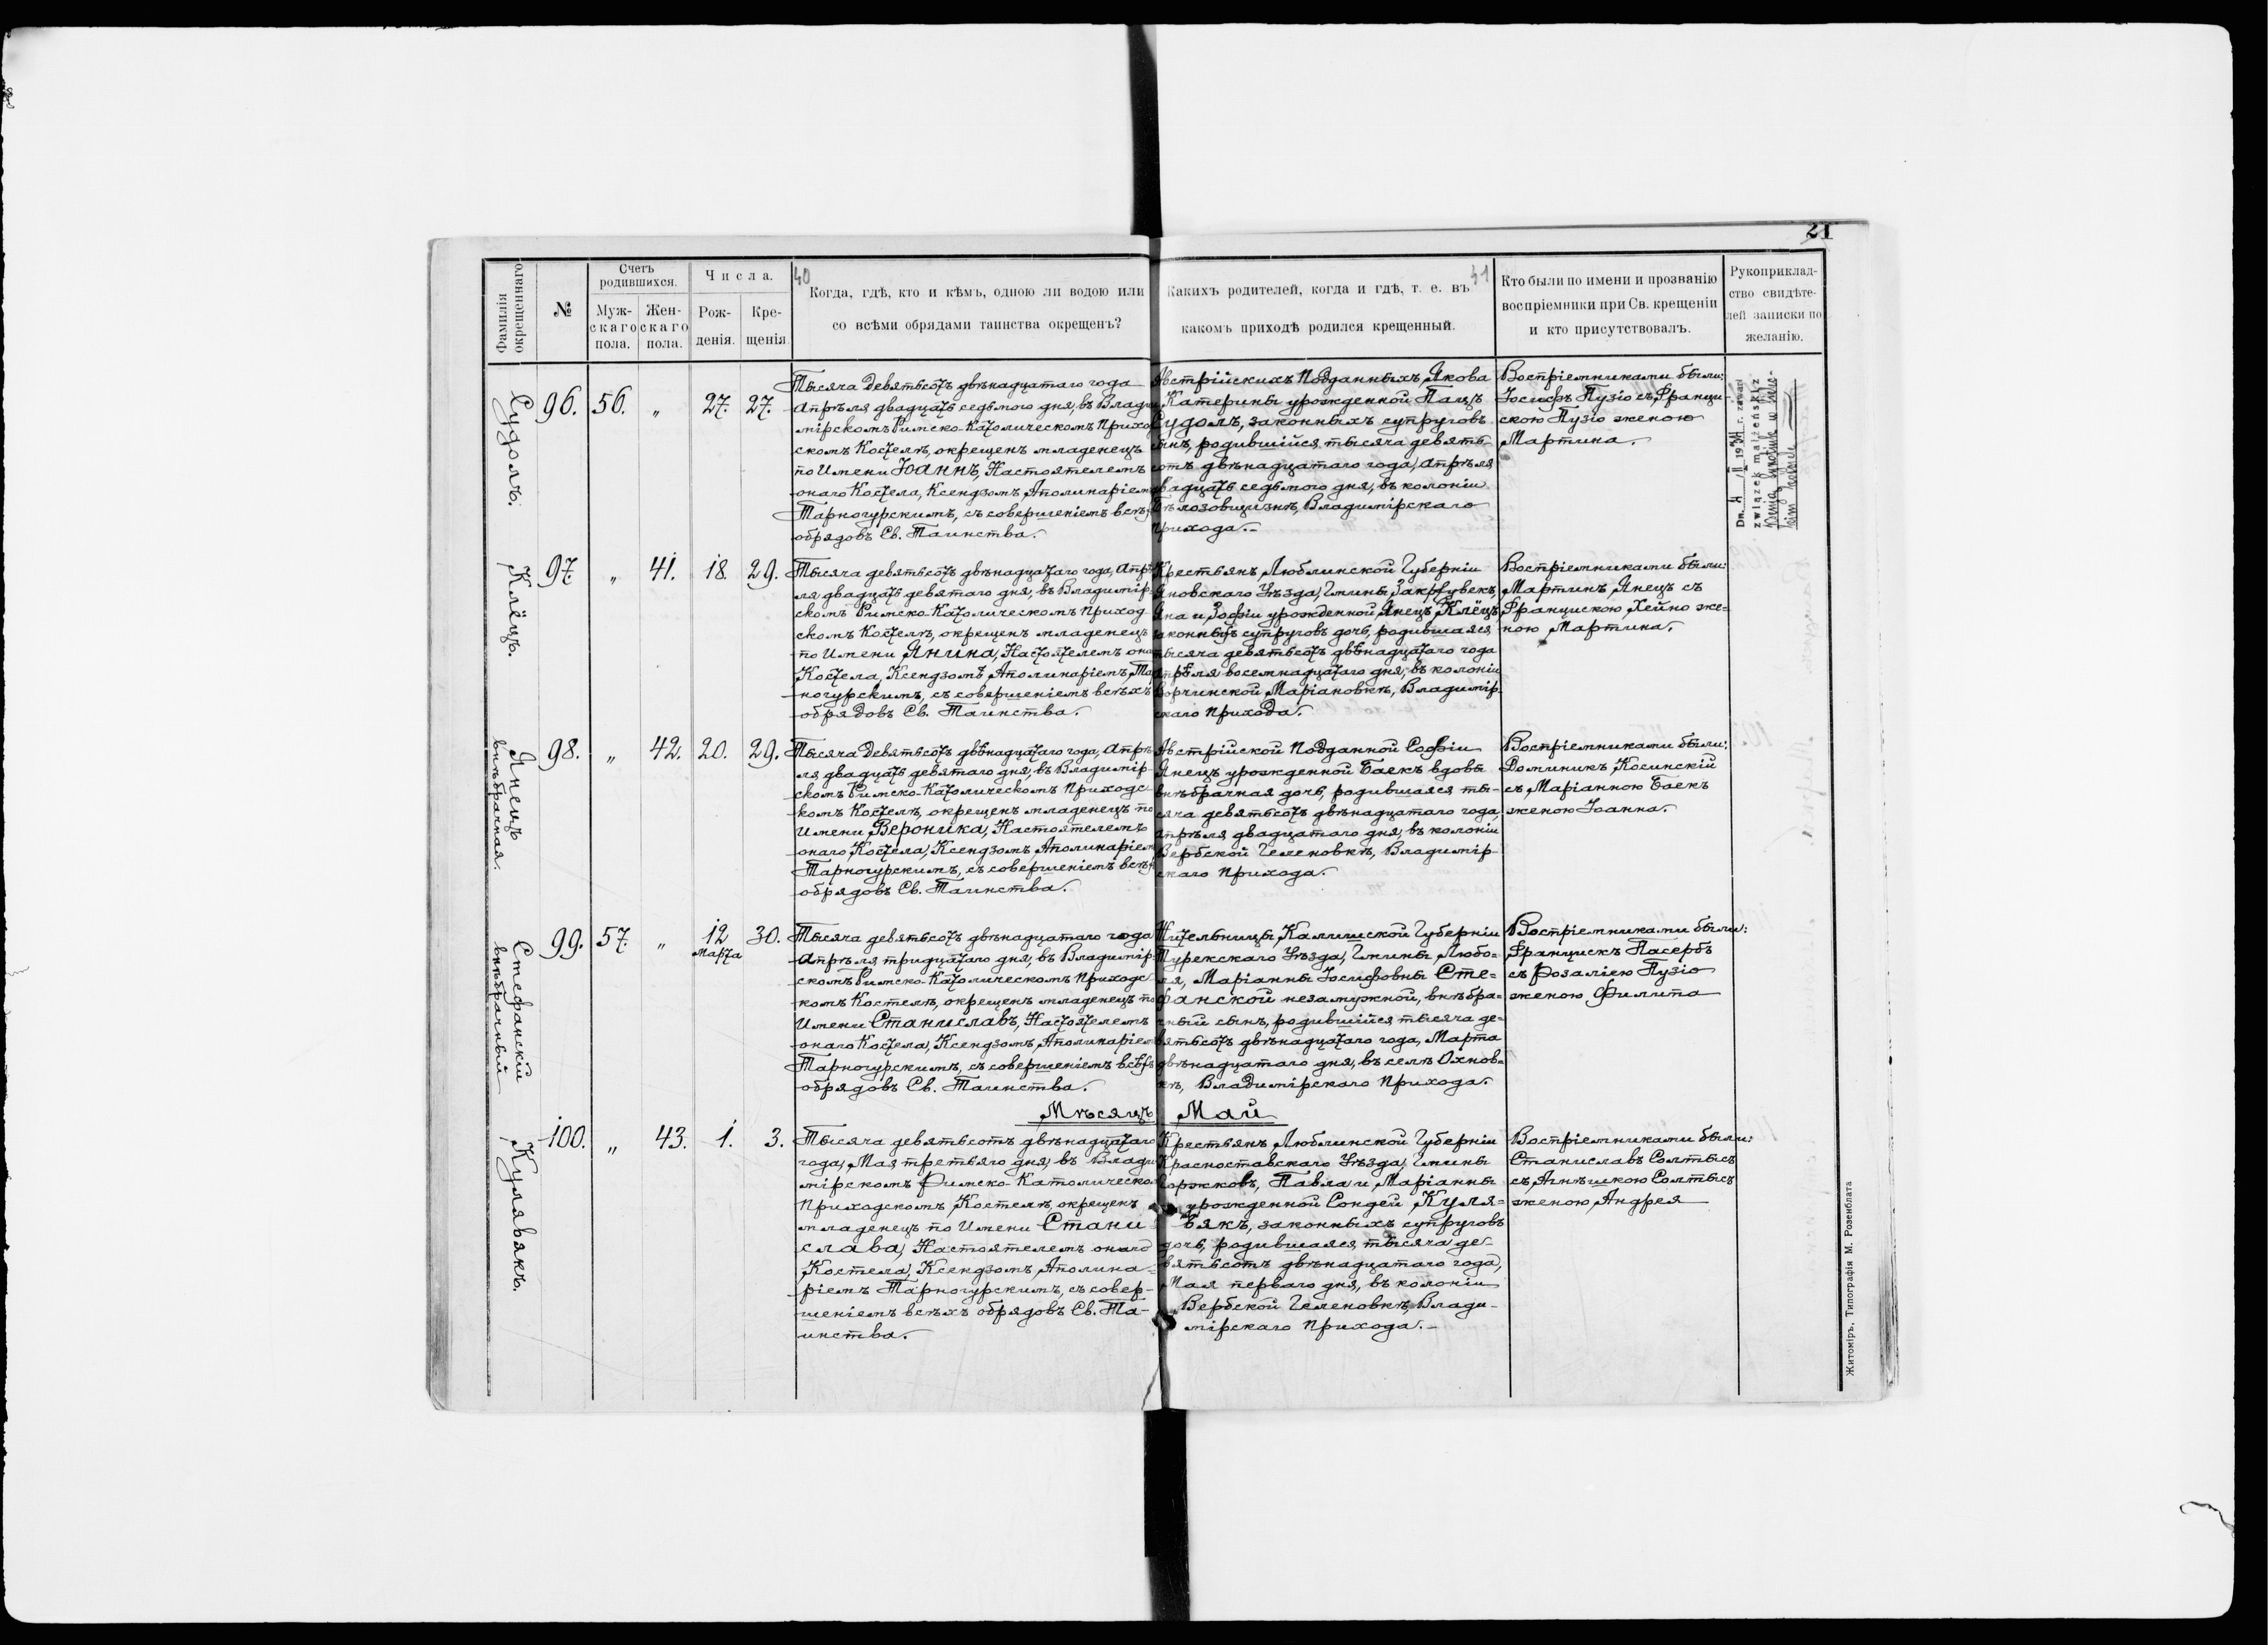 21
Фамилія
окрещеннаго
№
Счетъ
родившихся.
Муж-
скаго
пола.
Жен-
скаго
пола.
Числа.
Рож-
денія.
Кре-
щенія
40
Когда, гдѣ, кто и кѣмъ, одною ли водою или
со всѣми обрядами таинства окрещенъ?
Какихъ родителей, когда и гдѣ, т. е. въ
41
какомъ приходѣ родился крещенный.
Кто были по имени и прозванію
воспріемники при Св. крещеніи
и кто присутствовалъ.
Рукоприклад-
ство свидѣте-
лей записки по
желанію.
Судолъ.
96. 56. „ 27. 27.
Тысяча девятьсотъ двѣнадцатаго года
Апрѣля двадцать седьмого дня, въ Влади
мірскомъ Римско-Католическомъ Приход
скомъ Костелѣ, окрещенъ младенецъ
по Имени Іоаннъ, Настоятелемъ
онаго Костела, Ксендзомъ Аполинаріемъ
Тарногурскимъ, съ совершеніемъ всѣхъ
обрядовъ Св. Таинства.
Австрійскихъ Подданныхъ, Якова
Катерины урожденной Пацъ
Судолъ, законныхъ супруговъ
сынъ, родившійся тысяча девять-
сотъ двѣнадцатаго года, Апрѣля
двадцать седьмого дня, въ колоніи
Бѣлозовщизнѣ, Владимірскаго
Прихода.-
Воспріемниками были:
Іосифъ Пузіо съ Франци
скою Пузіо женою
Мартина.
Dn. 4 II 19 r. zawarł
związek małżeński z
97. „ 41. 18. 29.
Клёцъ.
Тысяча девятьсотъ двѣнадцатаго года, Апрѣ
ля двадцать девятаго дня, въ Владимір-
скомъ Римско-Католическомъ Приход
скомъ Костелѣ, окрещенъ младенецъ
по Имени Янина, Настоятелемъ она
Костела, Ксендзомъ Аполинаріемъ Тар
ногурскимъ, съ совершеніемъ всѣхъ
обрядовъ Св. Таинства.
Крестьянъ Люблинской Губерніи
Яновскаго Уѣзда, Гмины Закржувекъ,
Яна и Зофіи урожденной Янецъ, Клёцъ
законныхъ супруговъ дочь, родившаяся
тысяча девятьсотъ двѣнадцатаго года
Апрѣля восемнадцатаго дня, въ колоніи
Ворчинской Маріановкѣ, Владимір-
скаго Прихода.
Воспріемниками были:
Мартинъ Янецъ съ
Францискою Хейно же-
ною Мартина.
98. „ 42. 20. 29.
Янецъ
внѣбрачная.
Тысяча девятьсотъ двѣнадцатаго года, Апрѣ
ля двадцать девятаго дня, въ Владимір-
скомъ Римско-Католическомъ Приходс
комъ Костелѣ, окрещенъ младенецъ по
Имени Вероника, Настоятелемъ
онаго Костела, Ксендзомъ Аполинаріем
Тарногурскимъ, съ совершеніемъ всѣхъ
обрядовъ Св. Таинства.
Австрійской Подданной Софіи
Янецъ урожденной Баекъ вдовы
внѣбрачная дочь, родившаяся ты-
сяча девятьсотъ двѣнадцатаго года,
Апрѣля двадцатаго дня, въ колоніи
Вербской Геленовкѣ, Владимір-
скаго Прихода.
Воспріемниками были:
Доминикъ Косинскій
съ Маріанною Баекъ
женою Іоанна.
99. 57. „ 12 Марта 30.
Стефанскій
внѣбрачный
Тысяча девятьсотъ двѣнадцатаго года
Апрѣля тридцатаго дня, въ Владимір-
скомъ Римско-Католическомъ Приходс
комъ Костелѣ, окрещенъ младенецъ по
Имени Станиславъ, Настоятелемъ
онаго Костела, Ксендзомъ Аполинаріем
Тарногурскимъ, съ совершеніемъ всѣхъ
обрядовъ Св. Таинства.
Жительницы Калишской Губерніи
Турекскаго Уѣзда, Гмины Любо-
ля, Маріанны Іосифовны Сте-
фанской незамужной, внѣбра-
чный сынъ, родившійся тысяча де-
вятьсотъ двѣнадцатаго года, Марта
двѣнадцатаго дня, въ селѣ Охнов-
кѣ, Владимірскаго Прихода.
Воспріемниками были:
Францискъ Пасербъ
съ Розаліею Пузіо
женою Филипа
Мѣсяцъ Май
100. „ 43. 1. 3.
Кулявякъ.
Тысяча девятьсотъ двѣнадцатаго
года, Мая третьяго дня, въ Влади
мірскомъ Римско-Католическо
Приходскомъ Костелѣ, окрещенъ
младенецъ по Имени Стани
слава, Настоятелемъ онаго
Костела, Ксендзомъ Аполина-
ріемъ Тарногурскимъ, съ совер-
шеніемъ всѣхъ обрядовъ Св. Та-
инства.
Крестьянъ Люблинской Губерніи
Красноставскаго Уѣзда, Гмины
Горжковъ, Павла и Маріанны
урожденной Сондей, Куля-
вякъ, законныхъ супруговъ
дочь, родившаяся тысяча де-
вятьсотъ двѣнадцатаго года,
Мая перваго дня, въ колоніи
Вербской Геленовкѣ, Влади-
мірскаго Прихода.-
Воспріемниками были:
Станиславъ Солтысъ
съ Агнѣшкою Солтысъ
женою Андрея
Житоміръ, Типографія М. Розенблата